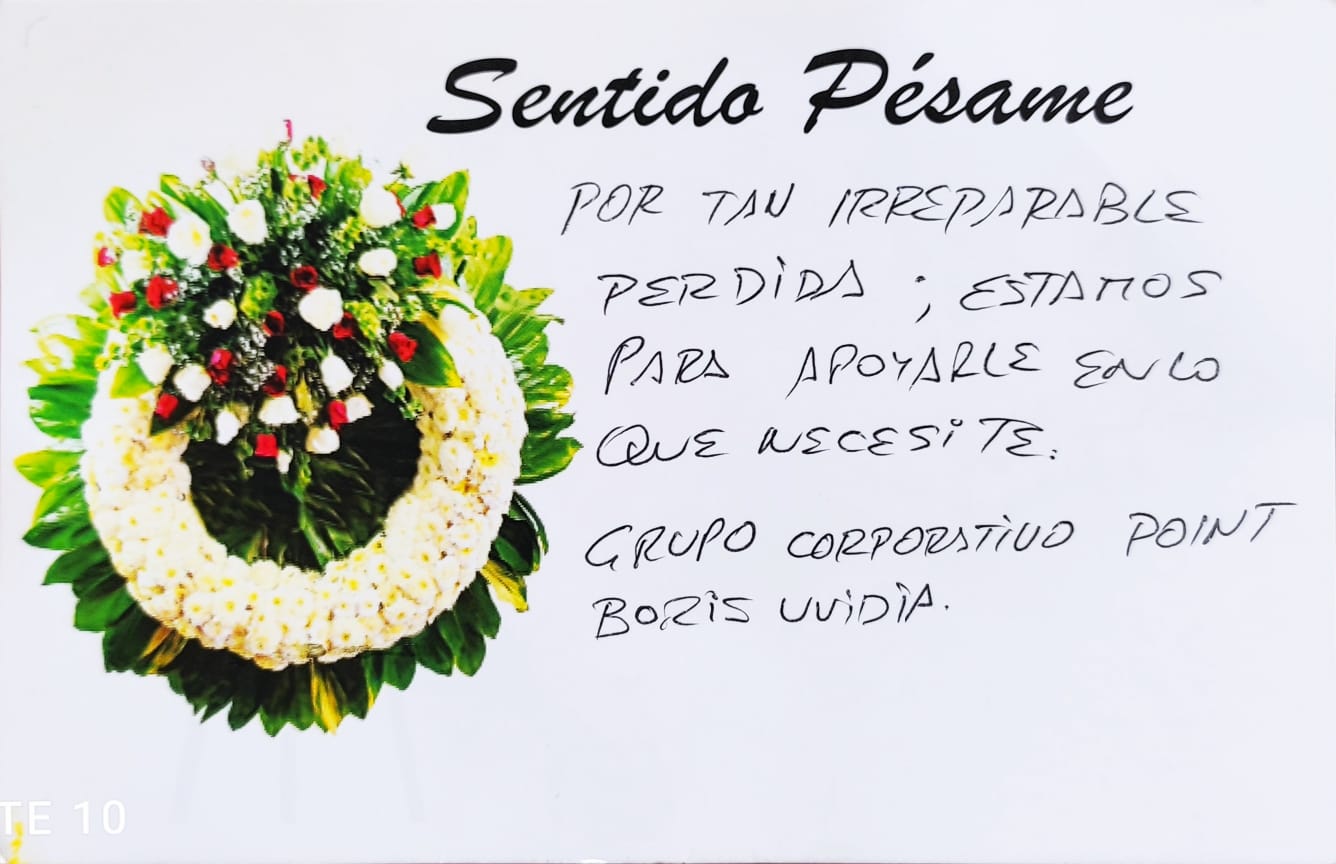 Sentido Pésame
POR TAN IRREPARABLE
PERDIDA ; ESTAMOS
PARA APOYARLE EN LO
QUE NECESITE.
GRUPO CORPORATIVO POINT
BORIS UVIDIA.
TE 10